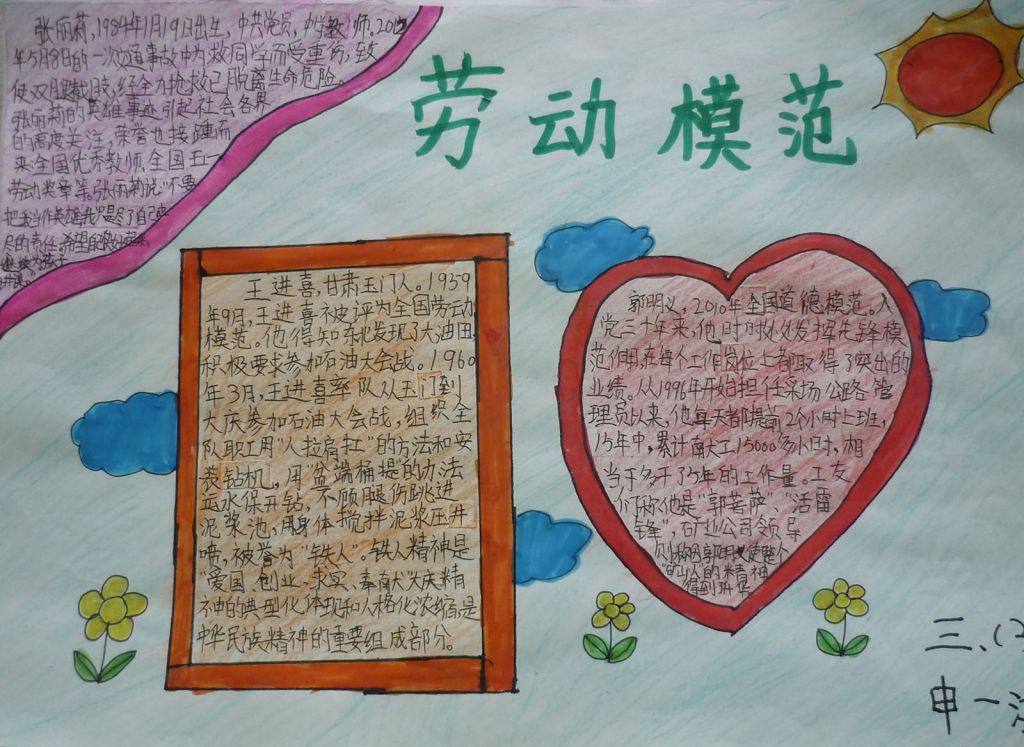 劳动模范
张丽莉,1984年1月19日出生,中共党员,中学教师。2012
年5月8日的一次交通事故中为救同学而受重伤,致
使双腿截肢,经全力抢救已脱离生命危险。
张丽莉的英雄事迹引起社会各界
的高度关注,荣誉也接踵而
来:全国优秀教师,全国五一
劳动奖章等。张丽莉说"不要
把我当作英雄,我只是尽了自己应
尽的责任,希望能
王进喜,甘肃玉门人。1959
年9月,王进喜被评为全国劳动
模范。他得知东北发现了大油田,
积极要求参加石油大会战。1960
年3月,王进喜率队从玉门到
大庆参加石油大会战,组织全
队职工用"人拉肩扛"的方法和安
装钻机,用"盆端桶提"的办法
运水保开钻,不顾腿伤跳进
泥浆池,用身体搅拌泥浆压井
喷,被誉为"铁人"。铁人精神是
"爱国、创业、求实、奉献"大庆精
神的典型化体现和人格化浓缩,是
中华民族精神的重要组成部分。
郭明义,2010年全国道德模范。入
党三十年来,他时时处处发挥先锋模
范作用,在每个工作岗位上都取得了突出的
业绩。从1996年开始担任采场公路管
理员以来,他每天都提前2个小时上班,
15年中,累计献工15000多小时,相
当于多干了5年的工作量。工友
们称他是"郭菩萨"、"活雷
锋",矿业公司领导
则称因郭明义使整个
的人的精神
得到升华
三、(2
申一